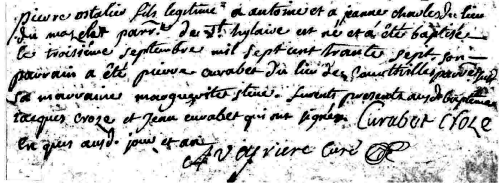 pierre ostalier fils legitime a antoine et a jeanne charles du lieu
du mazelet parr.e de st hylaire est né et a été baptisé
le troisiéme septembre mil sept cent trante sept son
parrain a été pierre curabet du lieu de
sa marraine marguerite furent presents aud. bapteme
jacques croze et jean curabet qui ont signés Curabet Croze
en qui aud. jour et an
Veyriere Curé